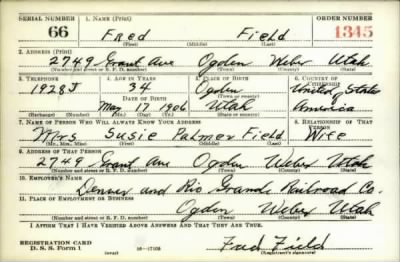 SERIAL NUMBER 1. NAME (Print) ORDER NUMBER
66 Fred Field 1345
(First) (Middle) (Last)
2. ADDRESS (Print)
2749 Grant Ave Ogden Weber Utah
(Number and street or R. F. D. number) (Town) (County) (State)
3. TELEPHONE 4. AGE IN YEARS 5. PLACE OF BIRTH 6. COUNTRY OF CITIZENSHIP
1928J 34 Ogden United States
(Town or county)
DATE OF BIRTH
May 17 1906 Utah America
(Exchange) (Number) (Mo.) (Day) (Yr.) (State or country)
7. NAME OF PERSON WHO WILL ALWAYS KNOW YOUR ADDRESS 8. RELATIONSHIP OF THAT PERSON
Mrs Susie Palmer Field Wife
(Mr., Mrs., Miss) (First) (Middle) (Last)
9. ADDRESS OF THAT PERSON
2749 Grant Ave Ogden Weber Utah
(Number and street or R. F. D. number) (Town) (County) (State)
10. EMPLOYER'S NAME
Denver and Rio Grande Railroad Co.
11. PLACE OF EMPLOYMENT OR BUSINESS
Ogden Weber Utah
(Number and street or R. F. D. number) (Town) (County) (State)
I AFFIRM THAT I HAVE VERIFIED ABOVE ANSWERS AND THAT THEY ARE TRUE.
REGISTRATION CARD
D. S. S. Form 1 (over) 16—17105 Fred Field
(Registrant's signature)